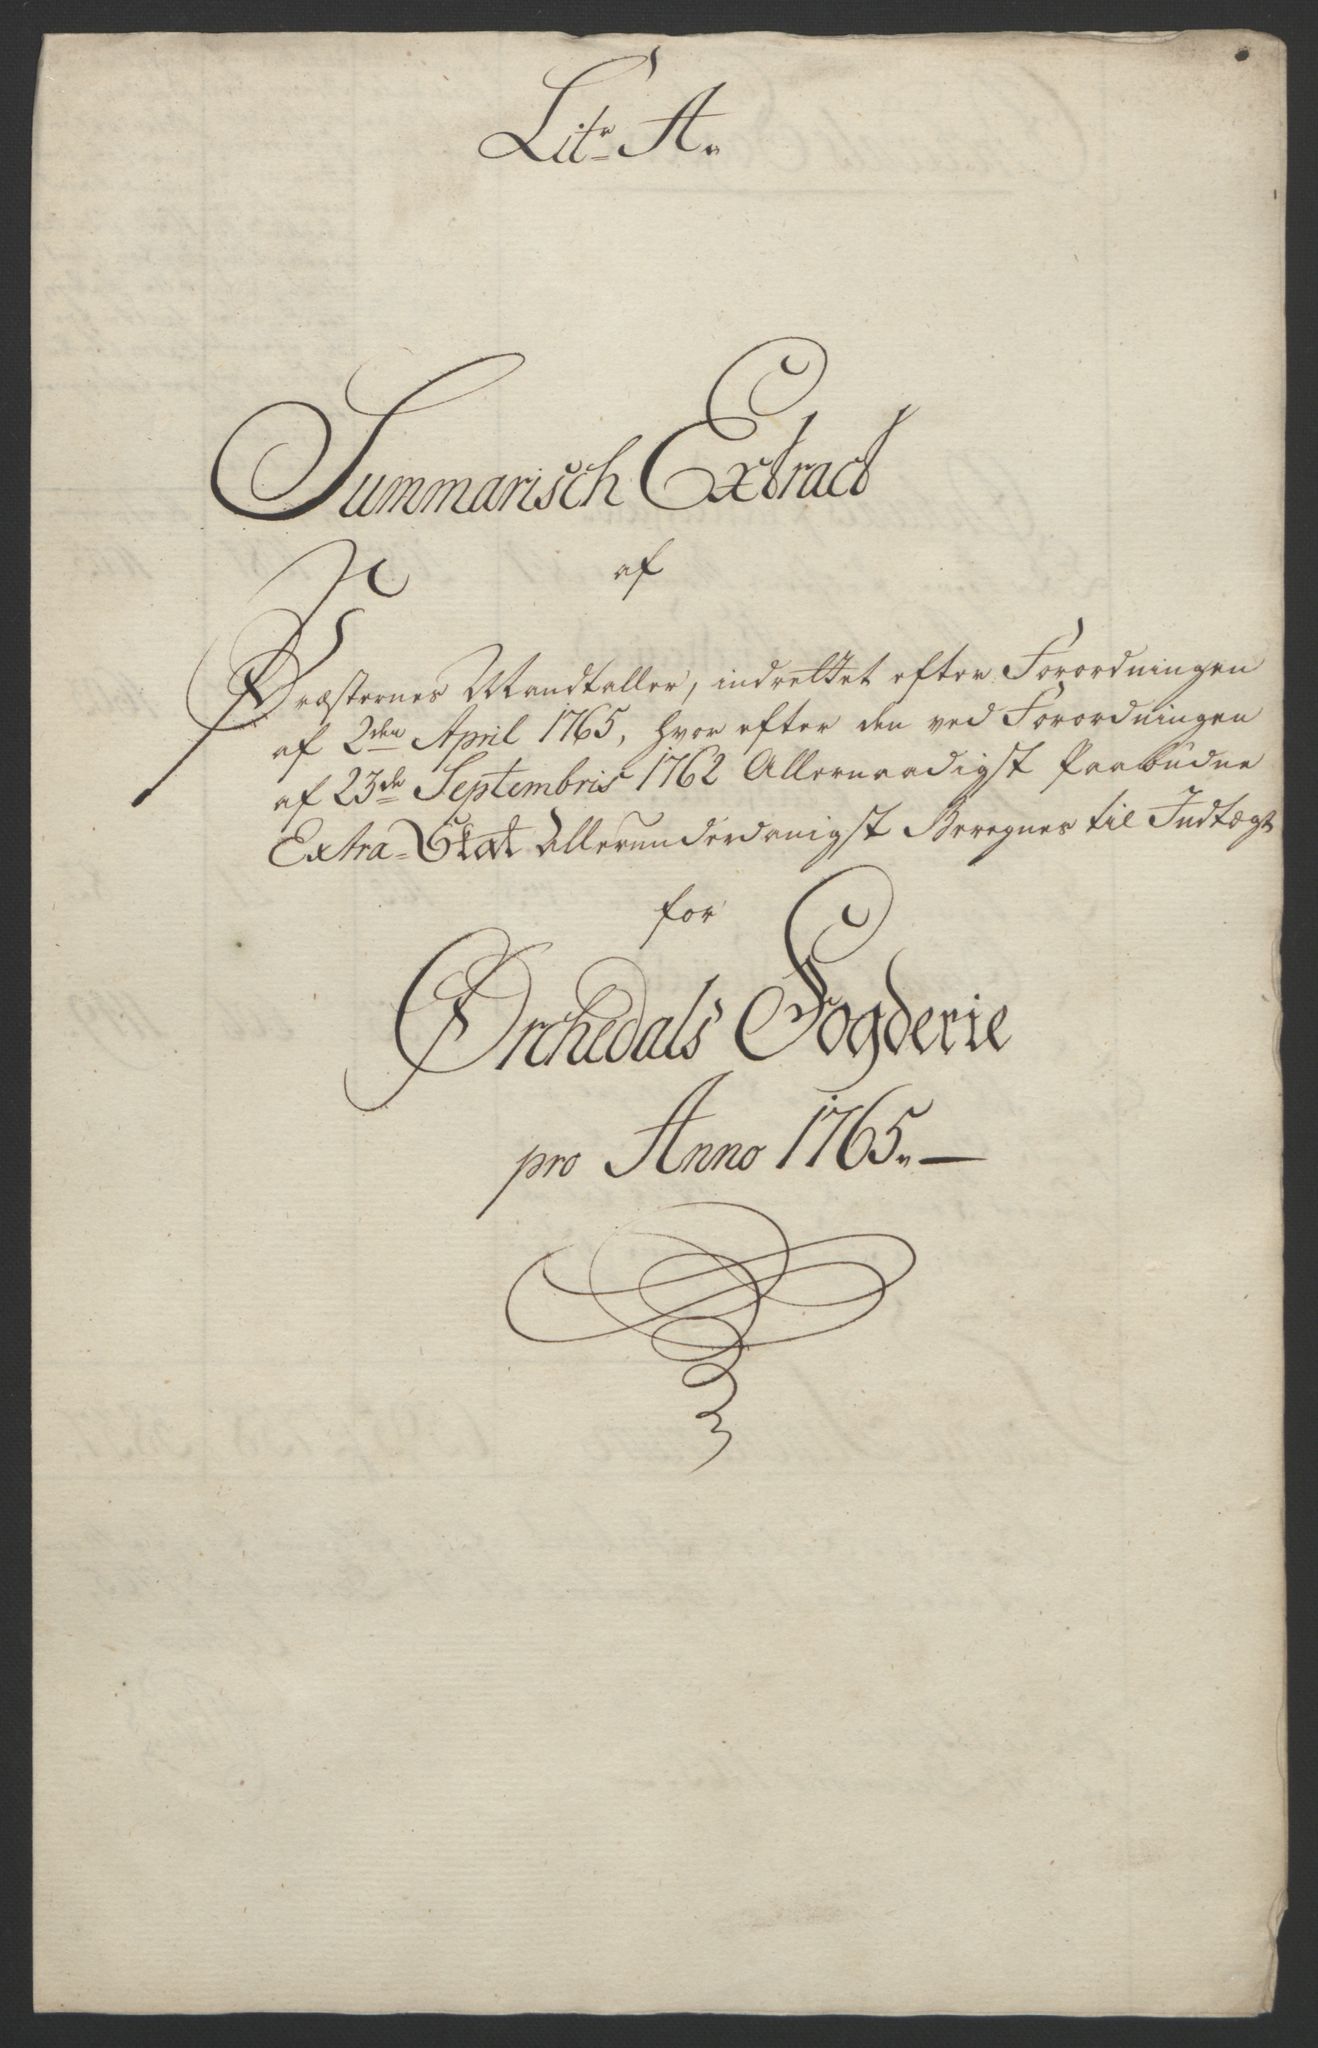 Litr A.
Summarisch Extract
af
Præsternes Mandtaller, indrettet efter Forordningen
af 2den April 1765, hvor efter den ved Forordningen
af 23de Septembris 1762 Allernaadigst Paabudne
Extra-Skat Allerunderdanigst Beregnes til Indtægt
for
Orchedals Fogderie
pro Anno 1765.